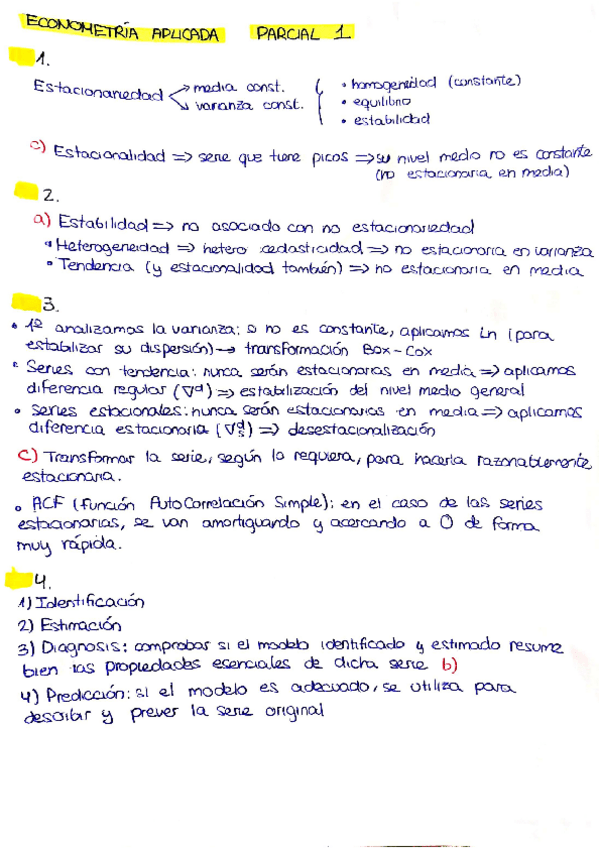 ECONOMETRÍA APLICADA PARCIAL 1
1.
Estacionariedad → media const. • homogeneidad (constante)
→ varianza const. • equilibrio
• estabilidad
c) Estacionalidad => serie que tiene picos => su nivel medio no es constante
(no estacionaria en media)
2.
a) Estabilidad => no asociado con no estacionariedad
• Heterogeneidad => heterocedasticidad => no estacionaria en varianza
• Tendencia (y estacionalidad también) => no estacionaria en media
3.
• 1º analizamos la varianza: si no es constante, aplicamos Ln (para
estabilizar su dispersión) → transformación Box-Cox
• Series con tendencia: nunca serán estacionarias en media => aplicamos
diferencia regular (∇^d) => estabilización del nivel medio general
• Series estacionales: nunca serán estacionarias en media => aplicamos
diferencia estacionaria (∇) => desestacionalización
c) Transformar la serie, según lo requiera, para hacerla razonablemente
estacionaria.
• ACF (función AutoCorrelación Simple): en el caso de las series
estacionarias, se van amortiguando y acercando a 0 de forma
muy rápida.
4.
1) Identificación
2) Estimación
3) Diagnosis: comprobar si el modelo identificado y estimado resume
bien las propiedades esenciales de dicha serie b)
4) Predicción: si el modelo es adecuado, se utiliza para
describir y prever la serie original